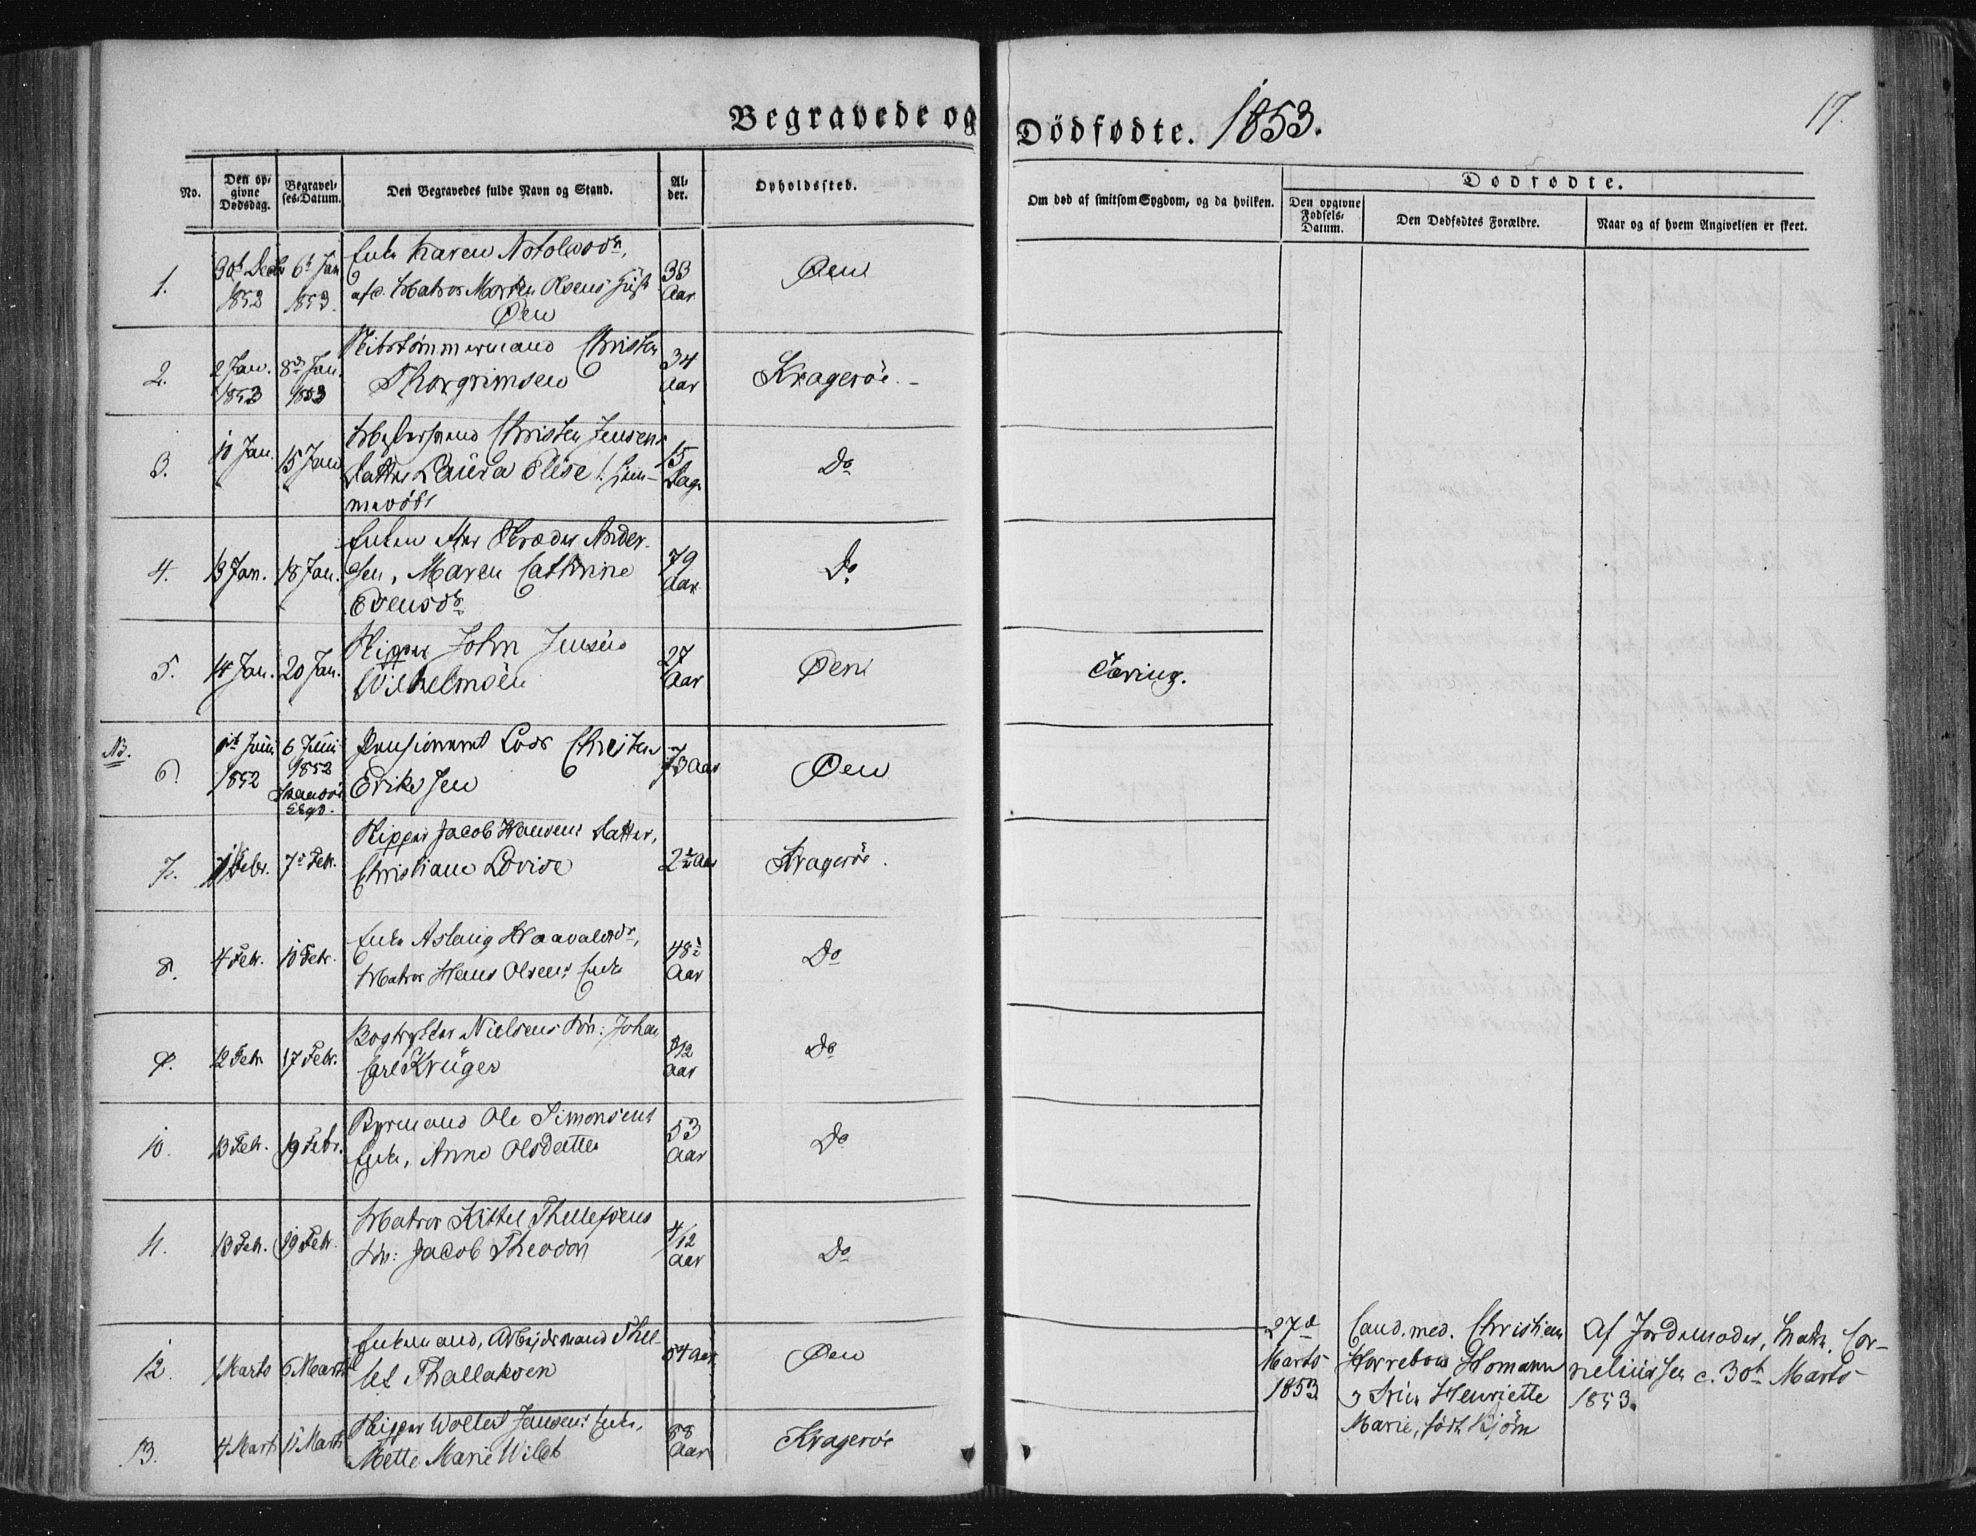 Begravede og Dødfødte. 1853.
17.
No.
Den opgivne Dødsdag.
Begravelses-Datum.
Den Begravedes fulde Navn og Stand.
Alder.
Opholdssted.
Om død af smitsom Sygdom, og da hvilken.
Dødfødte.
Den opgivne Fødsels-Datum.
Den Dødfødtes Forældre.
Naar og af hvem Angivelsen er skeet.
1.
30t Decbr 1852
6t Jan 1853.
Enke Karen
Matros Morten Olsens
Øen
33 Aar
Øen
2.
2 Jan. 1853
8de Jan. 1853
Skibstømmermand Christen
Thorgrimsen
34 Aar
Kragerøe.
3.
10 Jan.
15 Jan
Christen Jensens
Datter Laura Elise
15 Dage
Do
4.
13 Jan.
18 Jan.
Enken efter Skræder Ander-
sen, Maren Cathrine
Evensdr
79 Aar
Do
5.
14 Jan.
20 Jan.
Skipper John Jensen
Wilhelmsen
27 Aar
Øen
Tæring.
NB.
6.
1852
6 Juni 1852
Pensioneret Lods Christen
Eriksen
73 Aar
Øen
7.
Febr.
7de Febr.
Skipper Jacob Hansens Datter,
Christiane Lovise
2½ Aar
Kragerøe.
8.
4 Febr.
10 Febr.
Enke Aslaug
Matros Hans Olsens Enke
48½ Aar
Do
9.
12 Febr
17 Febr.
Bogtrykker Nielsens Søn: Johan
Carl Krüger
Aar
Do
10.
13 Febr.
19 Febr.
Byemand Ole Simonsens
Enke, Anne Olsdatter
53 Aar
Do
11.
13 Febr.
19 Febr.
Matros Kittel Thellefsens
Søn: Jacob Theodor
4/12 Aar
Do
12.
1 Marts
6 Marts
Enkemand, Arbeidsmand Thel-
lef Thallaksen
54 Aar
Øen
27de Marts 1853
Cand. med. Christian
Horrebow Homann
Henriette
Marie, født Kjørn
Af Jordemoder, Cor-
neliussen d. 30t Marts
1853.
13.
4 Marts
11 Marts
Skipper Wollert Jansens Enke,
Mette Marie Wildt
58 Aar
Kragerøe